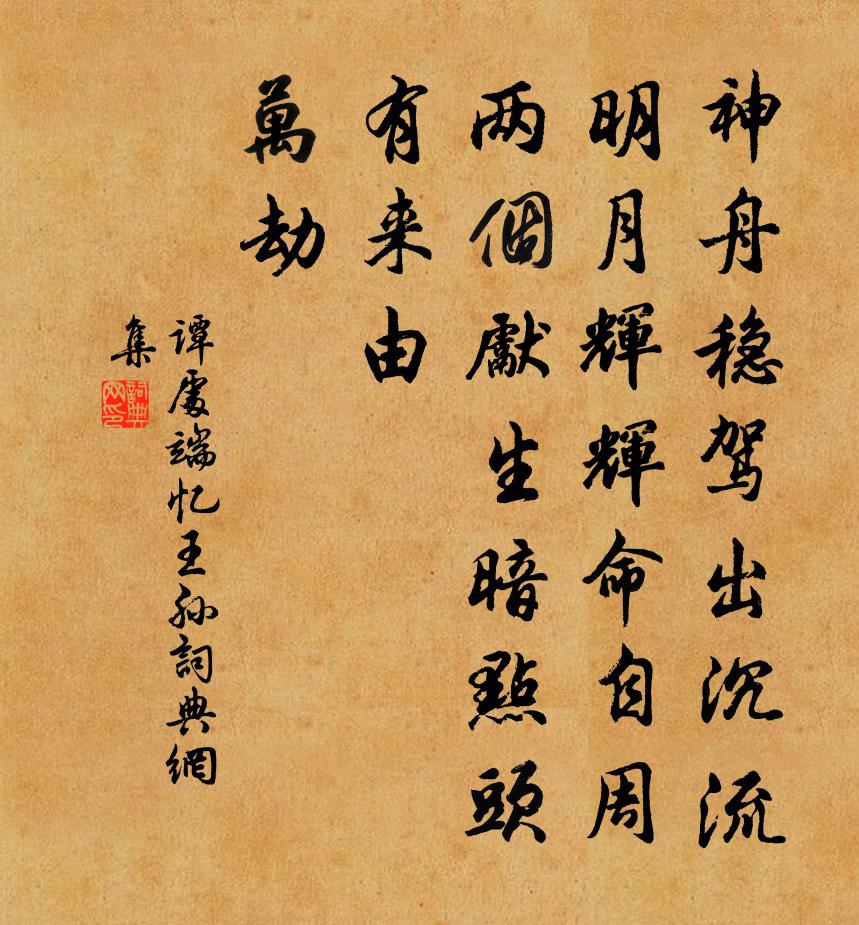 神舟稳驾出沉流
明月輝輝命自周
两個獻生暗點頭
有来由
萬劫
谭處端忆王孙詞典網
集
詞典網印